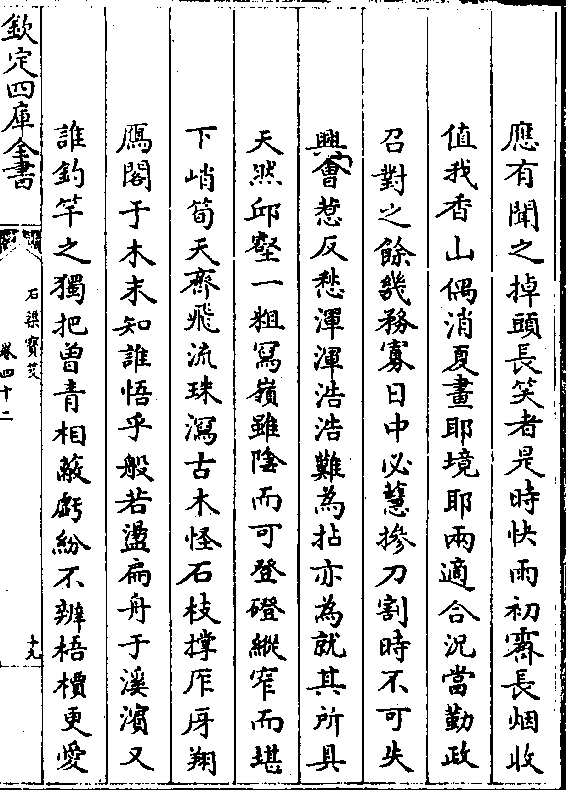 應有聞之掉頭長笑者是時快雨初霽長烟收
值我香山偶消夏畫耶境耶兩適合況當勤政
召對之餘幾務寡日中必慧摻刀割時不可失
興會惹反愁渾渾浩浩難為拈亦為就其所具
天然邱壑一粗寫嶺雖陰而可登磴縱窄而堪
下峭筍天齊飛流珠瀉古木怪石枝撐厈厊翔
鴈閣于木末知誰悟乎般若盪扁舟于溪濵又
誰釣竿之獨把曾青相蔽虧紛不辨梧檟更愛
欽定四庫全書
石渠寳笈
卷四十二
十九